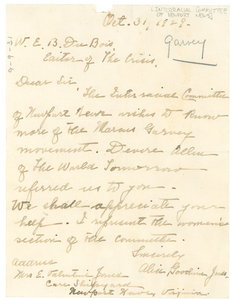 [INTERRACIAL COMMITTEE
OF NEWPORT NEWS]
Garvey
Oct. 31, 1928.
W. E. B. Du Bois
Editor of The Crisis,
Dear Sir
The Interracial Committee
of Newport News wishes to know
more of the Marcus Garvey
movement. Devere Allen
of The World Tomorrow
referred us to you.
We shall appreciate your
help. I represent the women's
section of the Committee.
Sincerely
Address
Mrs E. Valentine Jones
Care Shipyard
Newport News, Virginia